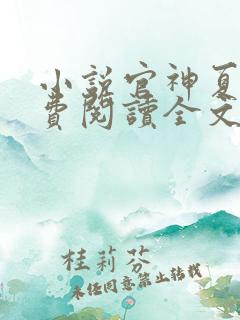 小説官神夏
費閱讀全文
桂莉芬
未經同意禁止轉載